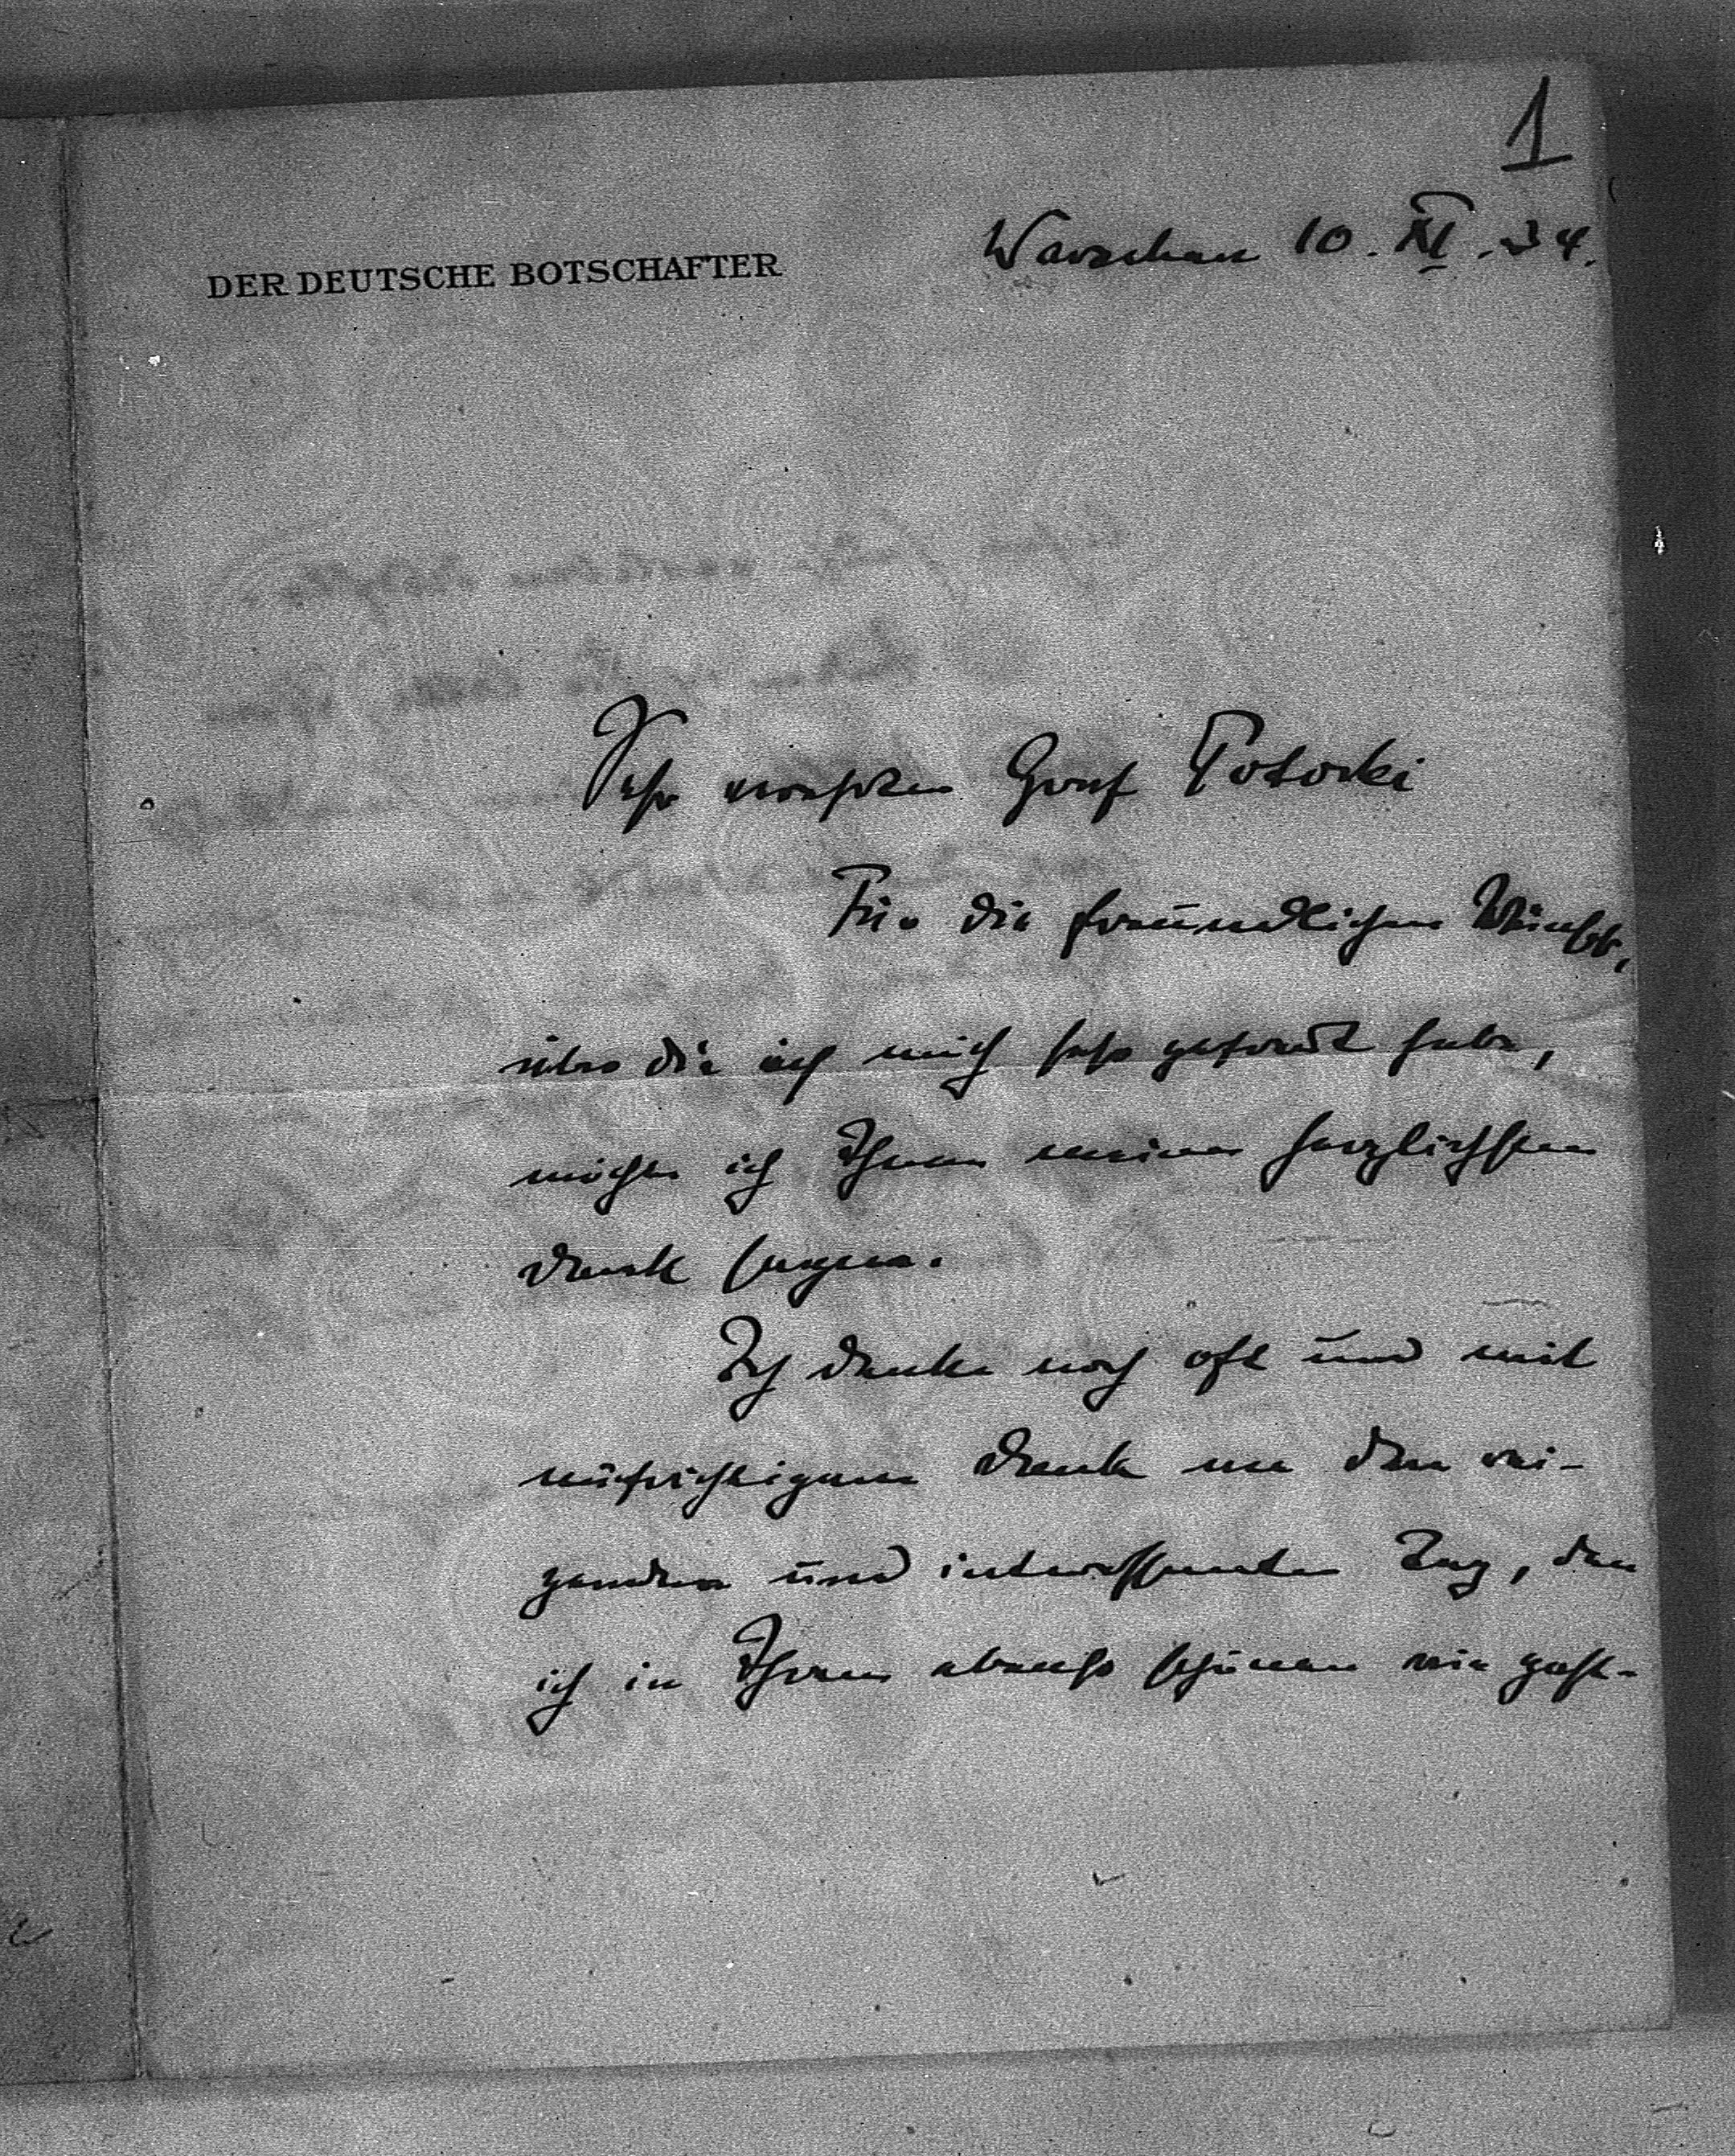 1
Warschau 10. XI. 34.
DER DEUTSCHE BOTSCHAFTER
Sehr verehrter Graf Potocki
Für die freundlichen Wünsche,
über die ich mich sehr gefreut habe,
möchte ich Ihnen meinen herzlichsten
Dank sagen.
Ich denke noch oft und mit
aufrichtigem Dank an den rei-
zenden und interessanten Tag, den
ich in Ihrem ebenso schönen wie gast-